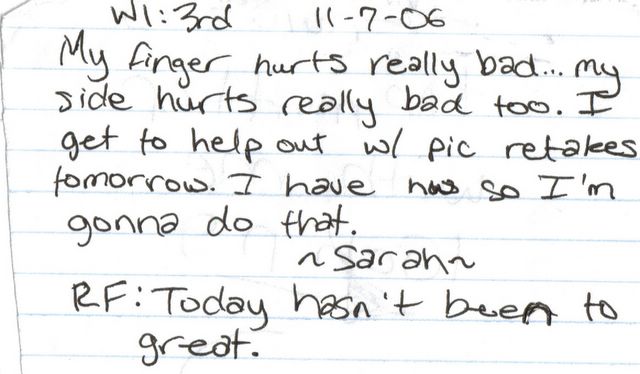 W1:3rd 11-7-06
My finger hurts really bad... my
side hurts really bad too. I
get to help out w/ pic retakes
tomorrow. I have so I'm
gonna do that.
~Sarah~
RF: Today hasn't been to
great.